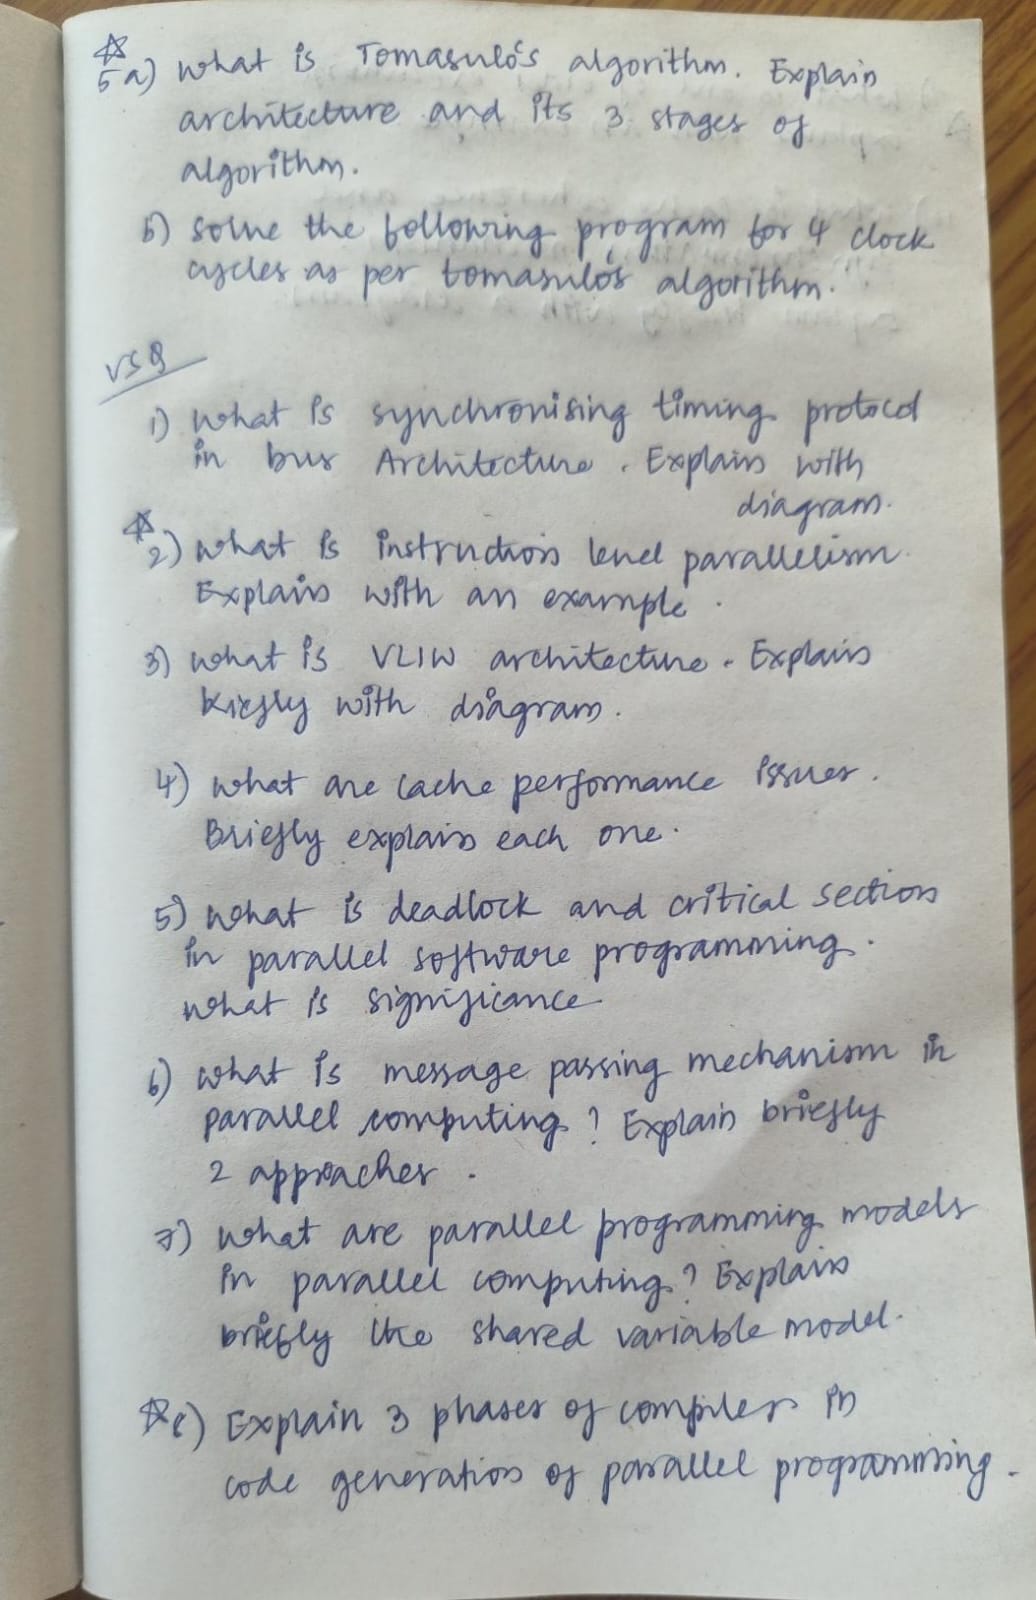 ☆
5 a) What is Tomasulo's algorithm. Explain
architecture and its 3 stages of
algorithm.
b) Solve the following program for 4 clock
cycles as per tomasulo's algorithm.
VSQ
1) What is synchronising timing protocol
in bus Architecture. Explain with
diagram.
☆
2) What is instruction level parallelism
Explain with an example.
3) What is VLIW architecture. Explain
briefly with diagram.
4) What are cache performance issues.
Briefly explain each one.
5) What is deadlock and critical section
in parallel software programming.
What is significance
6) What is message passing mechanism in
parallel computing? Explain briefly
2 approaches.
7) What are parallel programming models
in parallel computing? Explain
briefly the shared variable model.
☆ 8) Explain 3 phases of compiler in
code generation of parallel programming.